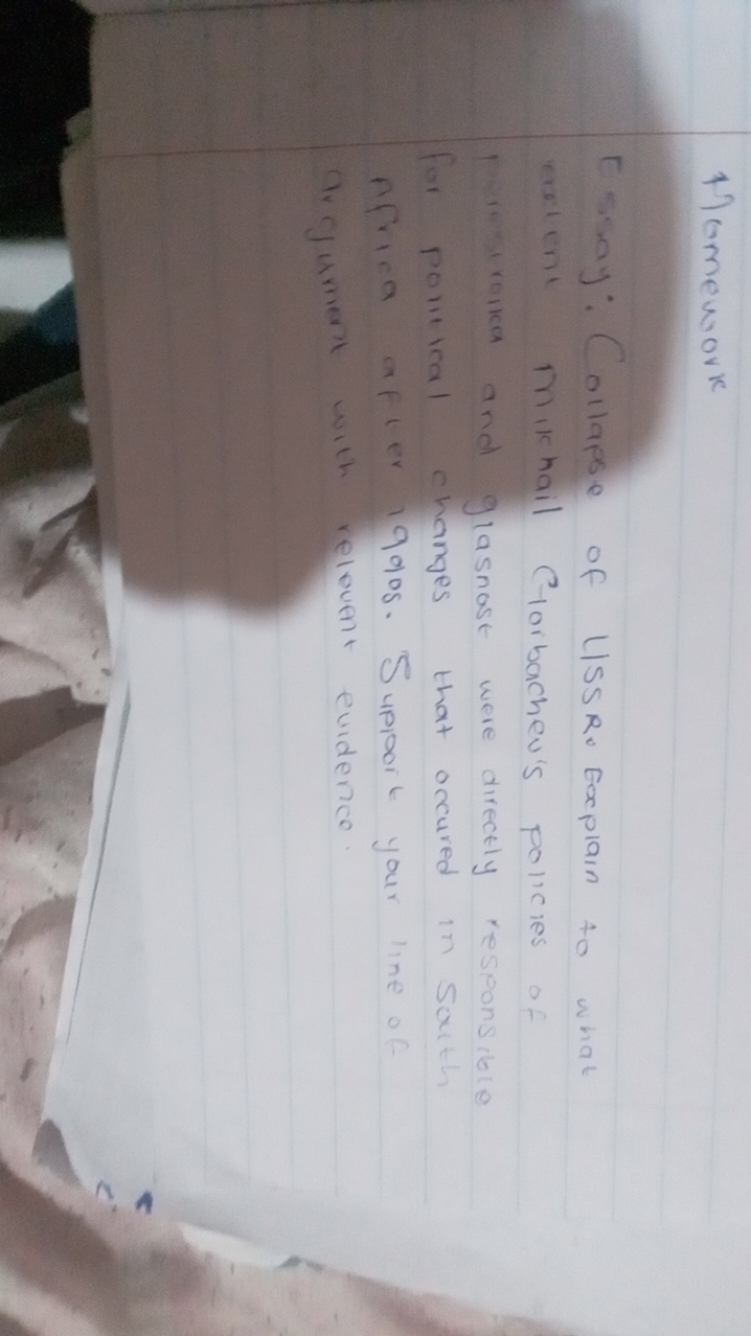 Homework
Essay: Collapse of USSR. Explain to what
extent Mikhail Gorbachev's policies of
perestroika and glasnost were directly responsible
for political changes that occured in South
Africa after 1990s. Support your line of
argument with relevent evidence.